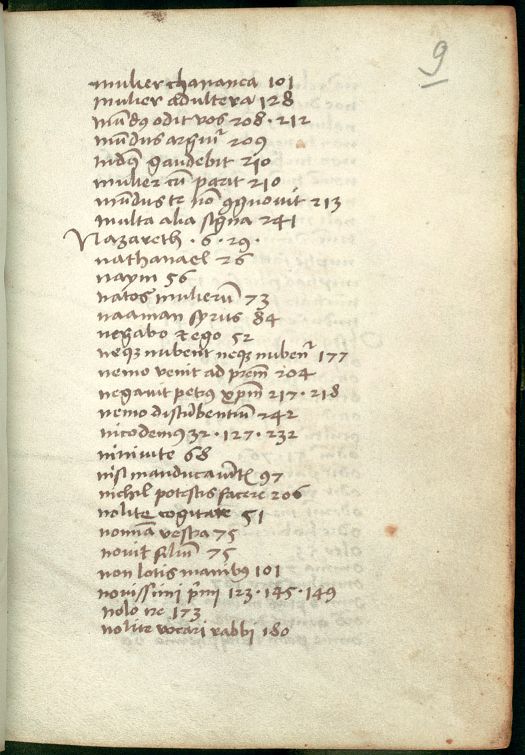 9
mulier chananea 101
mulier adultera 128
mūdꝰ odit vos 208 · 212
mūdus arguit᷑ 209
mūdꝰ gaudebit 210
mulier cū parit 210
mūdus te nō ꝯgnovit 213
multa alia signa 241
Nazareth · 6 · 29 ·
nathanael 26
naym 56
natos mulierū 73
naaman syrus 84
negabo & ego 52
neqꝫ nubent neqꝫ nubent᷑ 177
nemo venit ad prēm 204
negavit petrꝰ xp̄m 217 · 218
nemo discūbentiū 242
nicodemꝰ 32 · 127 · 232
ninivite 68
nisi manducavīt 97
nichil potestis facere 206
nolite cogitare 51
nomīa vestra 75
novit filiū 75
non lotis manibꝰ 101
novissimi p̄mi 123 · 145 · 149
nolo re 173
nolite vocari rabbi 180